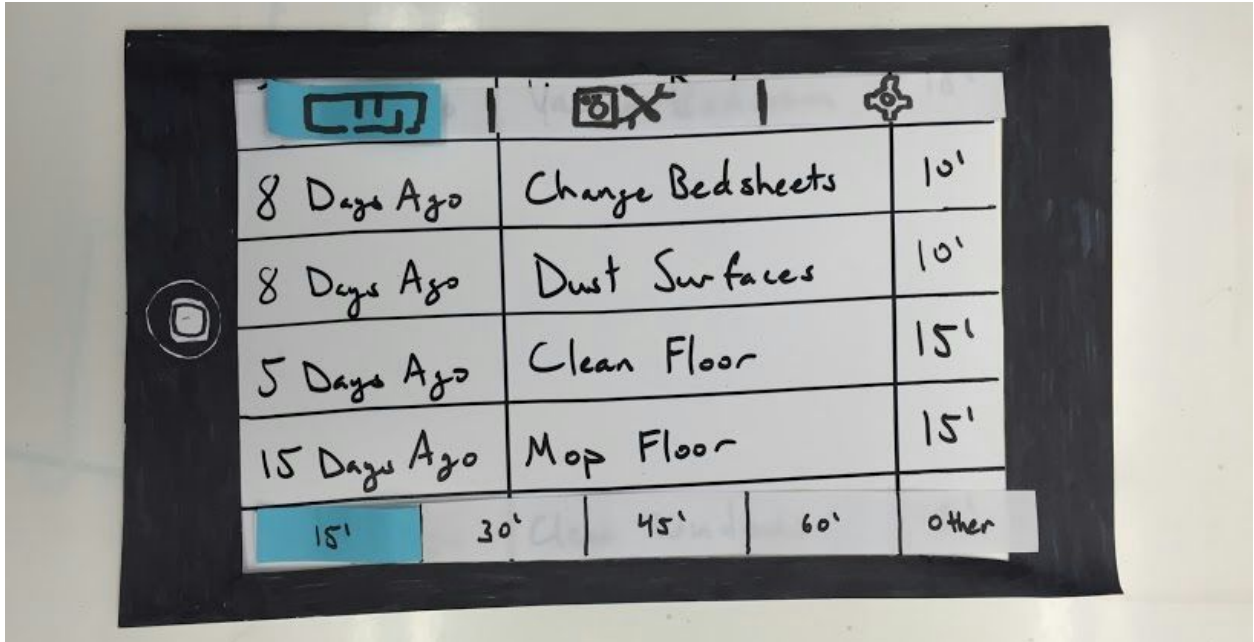 8 Days Ago Change Bedsheets 10'
8 Days Ago Dust Surfaces 10'
5 Days Ago Clean Floor 15'
15 Days Ago Mop Floor 15'
15' 30' 45' 60' Other